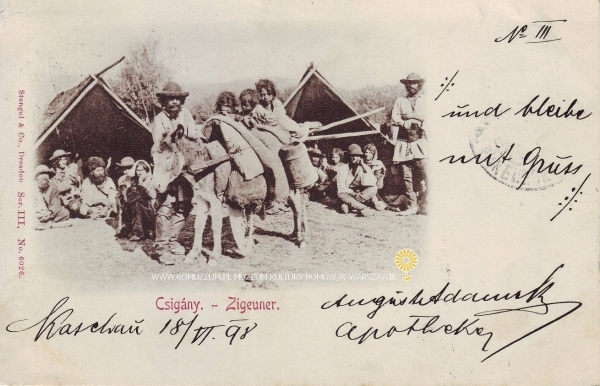 No III
und bleibe
mit Gruss
Stengel & Co., Dresden Ser. III, No. 6026.
WWW.ROMUZEUM.PL MUZEUM KULTURY ROMÓW W WARSZAWIE
Csigány. - Zigeuner.
Kaschau 18/VI 98
August Adam
Apotheker